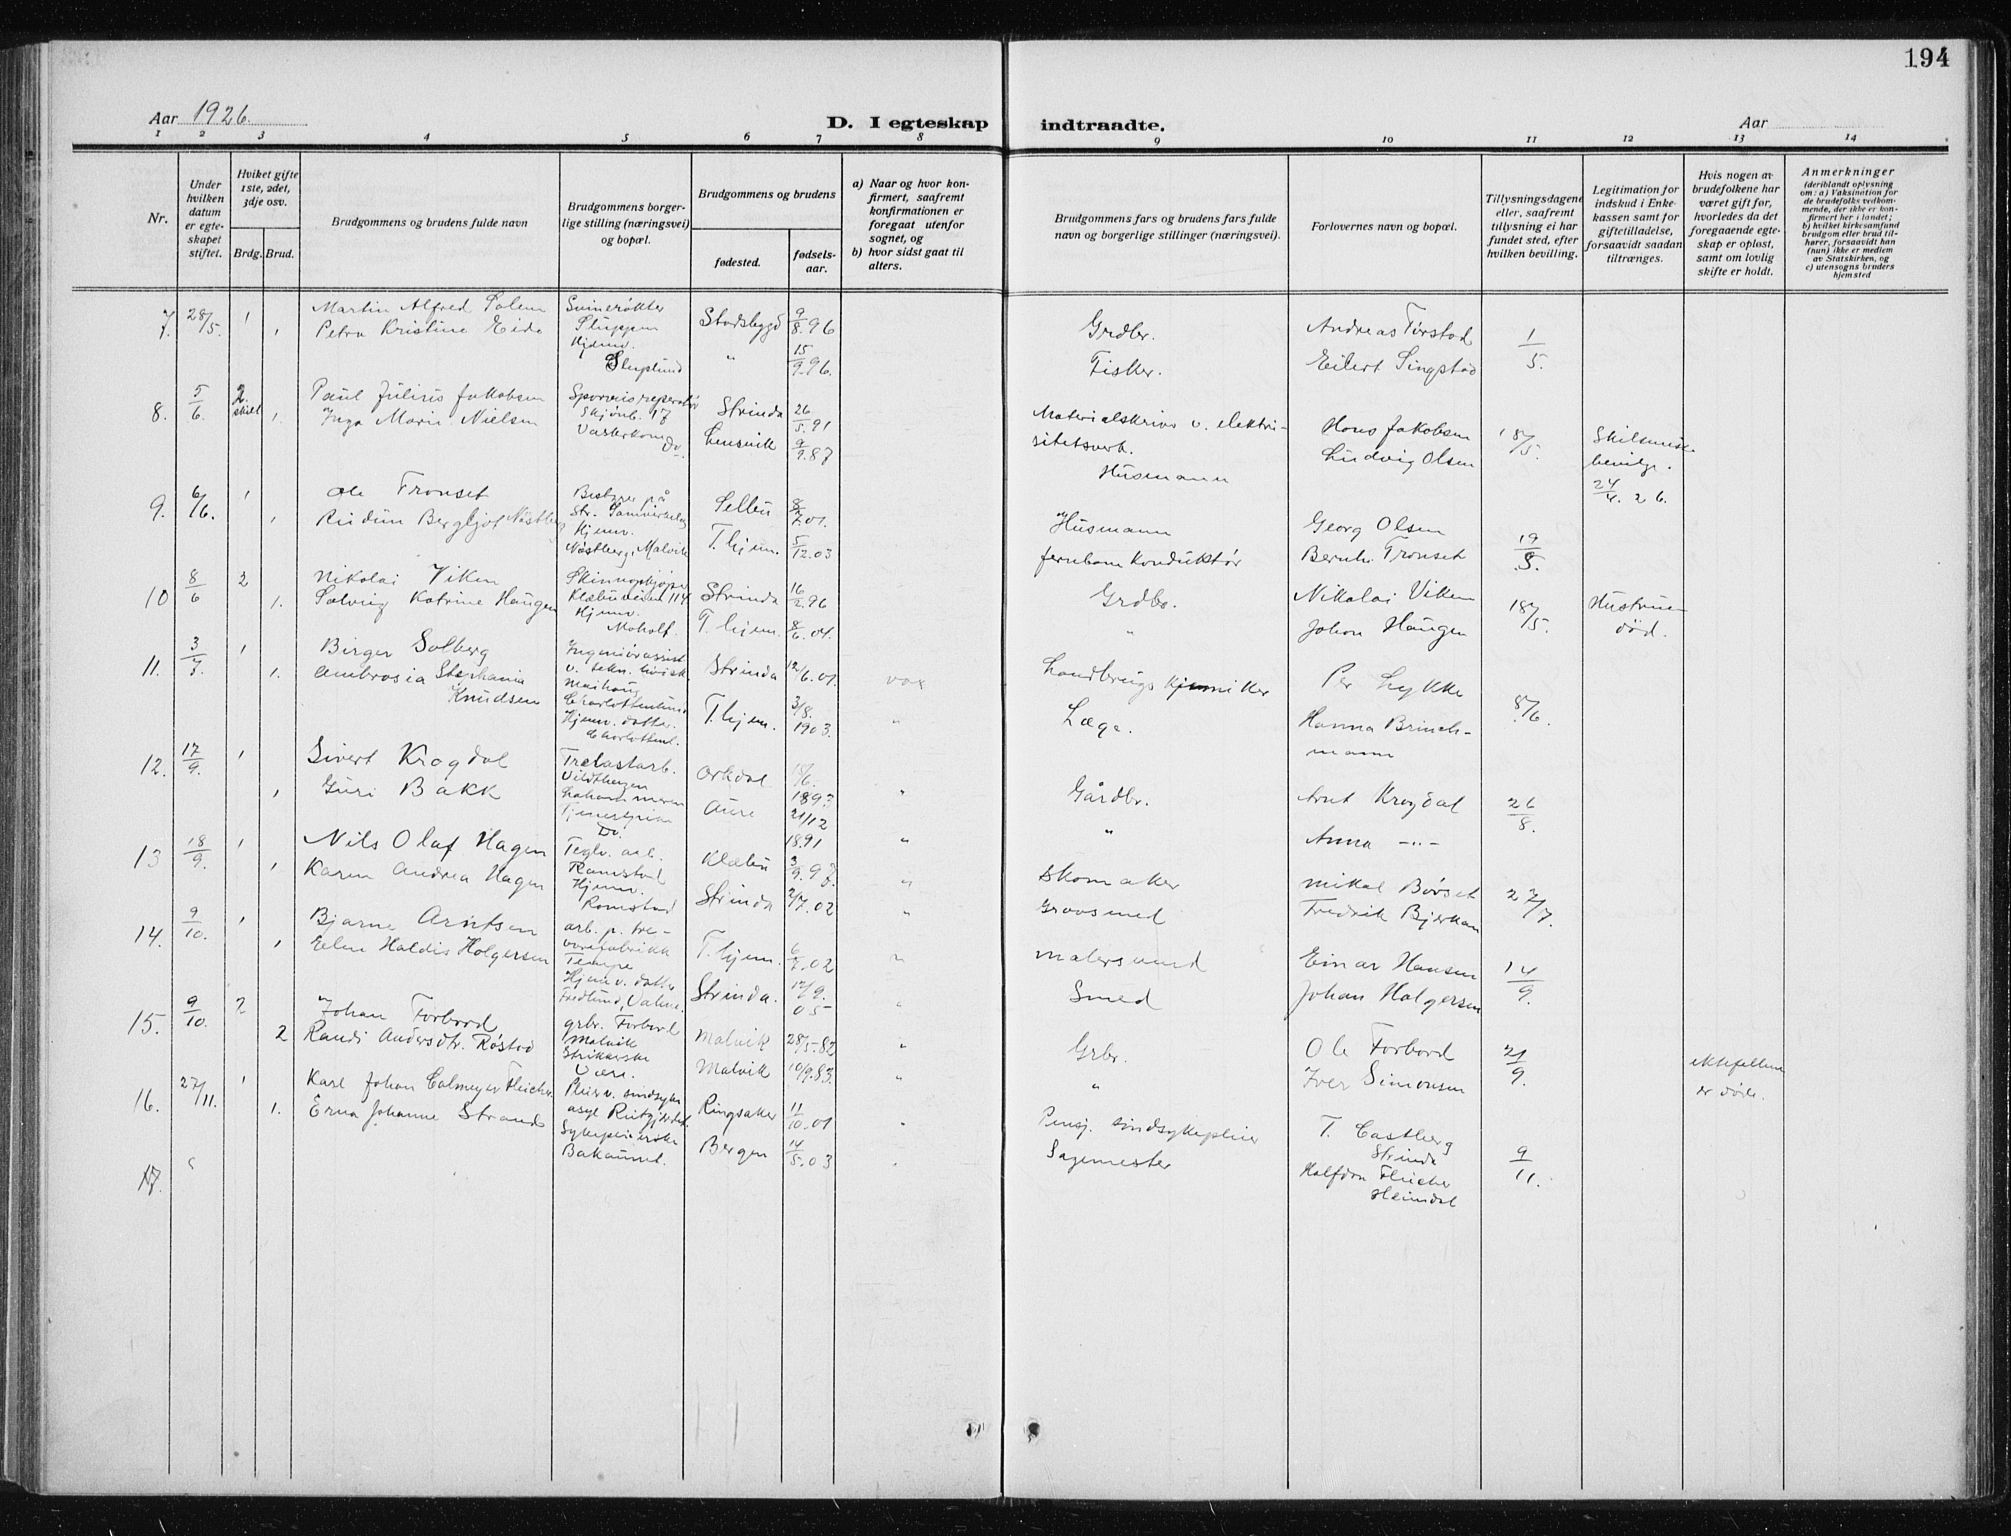 194
Aar 1926
D. I egteskap indtraadte.
Aar
1 2 3 4 5 6 7 8 9 10 11 12 13 14
Nr.
Under hvilken datum er egteskapet stiftet.
Hviket gifte 1ste, 2det, 3dje osv.
Brdg. Brud.
Brudgommens og brudens fulde navn
Brudgommens borgerlige stilling (næringsvei) og bopæl.
Brudgommens og brudens
fødested.
fødselsaar.
a) Naar og hvor konfirmert, saafremt konfirmationen er foregaat utenfor sognet, og
b) hvor sidst gaat til alters.
Brudgommens fars og brudens fars fulde navn og borgerlige stillinger (næringsvei).
Forlovernes navn og bopæl.
Tillysningsdagene eller, saafremt tillysning ei har fundet sted, efter hvilken bevilling.
Legitimation for indskud i Enkekassen samt for giftetilladelse, forsaavidt saadan tiltrænges.
Hvis nogen av brudefolkene har været gift før, hvorledes da det foregaaende egteskap er opløst, samt om lovlig skifte er holdt.
Anmerkninger
(deriblandt oplysning om: a) Vaksination for de brudefolks vedkommende, der ikke er konfirmert her i landet; b) hvilket kirkesamfund brudgom eller brud tilhører, forsaavidt han (hun) ikke er medlem av Statskirken, og c) utensogns bruders hjemsted
7. 28/5. 1 Martin Alfred Solem Svinerøkter Stuppen Stadsbygd 9/8.96 Grdbr. Andreas Tørstad 1/5.
1 Petra Kristine Eide Hjemv. " 15/9.96. Fisker. Eilert Singstad
8. 5/6. 2 skilt Paul Julius Jakobsen Skjönb. 17 Strinda 26/5.91 v. elektrisitetsverk. Hans Jakobsen 18/5. bevilg. 24/4.26.
1. Inga Marie Nielsen Do. Lensvik 9/9.87 Husmann Ludvig Olsen
9. 6/6. 1 Ole Tronset Bestyrer på Selbu 8/7.01. Husmann Georg Olsen 19/5.
1 Bergljot Nöstberg Hjemv. Nöstberg, Malvik T.hjem. 5/12.03 Jernbane konduktør Bernh. Tronset
10 8/6 2 Nikolai Viken Klæbuveien 114 Strinda 16/2.96 Grdbr. Nikolai Viken 18/5. Hustrue död.
1. Solveig Katrine Haugen Hjemv. Moholt. T.hjem. 8/6.04. " Johan Haugen
11. 3/7. 1 Birger Solberg Ingeniörassist. v. tekn. höisk. Charlottenlund Strinda 12/6.01. vax Landbrugs kjemiker Per Lykke 8/6.
1. Ambrosia Stephania Knudsen Hjemv. datter. Charlottenl. T.hjem. 3/8.1903. " Læge. Hanna Brinchmann
12. 17/9. 1 Sivert Krogdal Trelastarb. Orkdal 1893 " Gårdbr. Arnt Krogdal 26/8.
1 Guri Bakk Do. Aure 21/12 1891 " " Anna -"-
13 18/9. 1 Nils Olaf Hagen Teglv. arb. Ramstad Klæbu " Skomaker Mikal Børset 27/7.
1 Karen Andrea Hagen Hjemv. Ramstad Strinda 2/7.02 " Grovsmed Fredrik Bjerkan
14. 9/10. 1 Bjarne Arntsen arb. p. trevarefabrikk Tempe T.hjem. 6/7.02 " Malersvend Einar Hansen 14/9.
1 Ellen Haldis Holgersen Hjemv. datter Fredlund, Strinda. 12/9.05 " Smed Johan Holgersen
15. 9/10. 2 Johan Forbord grbr. Forbord Malvik Malvik 28/5-82 " Grbr. Ole Forbord 21/9. ektefellene er døde.
2 Randi Andersdtr. Røstad Strikkerske Være. Malvik 10/9.83. " " Iver Simonsen
16. 27/11. 1 Karl Johan Calmeyer Fleicher Pleier v. sindsyke asyl Rotvoll Ringsaker 11/10.01 " Pensj. sindsykepleier T. Castberg Strinda 9/11.
1. Erna Johanne Strand Sykepleierske Bakaunet. Bergen 14/5.03 Sagmester Halfdan Fleicher Heimdal
17.